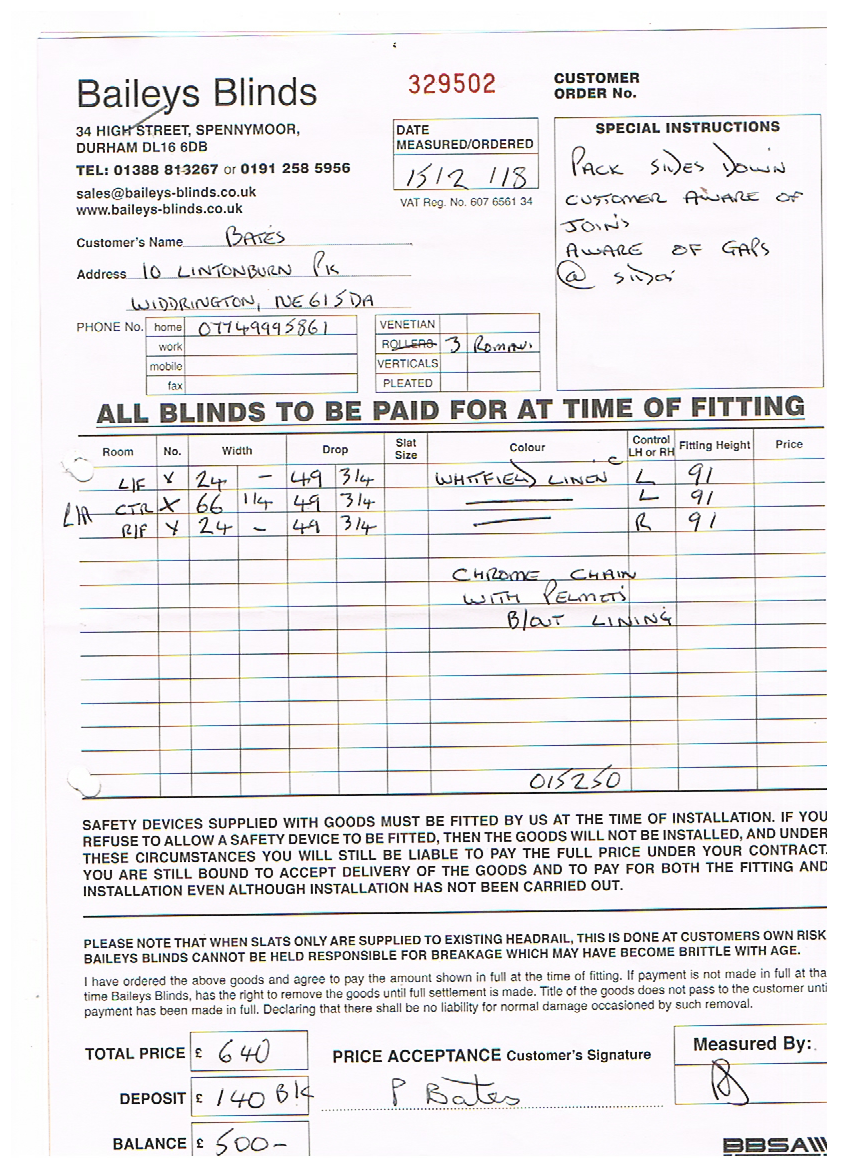 Baileys Blinds
34 HIGH STREET, SPENNYMOOR,
DURHAM DL16 6DB
TEL: 01388 813267 or 0191 258 5956
sales@baileys-blinds.co.uk
www.baileys-blinds.co.uk
329502
CUSTOMER
ORDER No.
DATE
MEASURED/ORDERED
15/2/18
VAT Reg. No. 607 6561 34
SPECIAL INSTRUCTIONS
PACK SIDES DOWN
CUSTOMER AWARE OF
JOINS
AWARE OF GAPS
@ SIDES
Customer's Name BATES
Address 10 LINTONBURN PK
WIDDRINGTON, NE61 5DA
PHONE No. home 07749995861
work
mobile
fax
VENETIAN
ROLLERS 3 ROMANS
VERTICALS
PLEATED
ALL BLINDS TO BE PAID FOR AT TIME OF FITTING
Room No. Width Drop Slat Size Colour Control LH or RH Fitting Height Price
L/F X 24 - 49 3/4 WHITFIELD LINEN C L 91
CTR X 66 1/4 49 3/4 L 91
R/F X 24 - 49 3/4 R 91
CHROME CHAIN
WITH PELMETS
B/OUT LINING
015250
SAFETY DEVICES SUPPLIED WITH GOODS MUST BE FITTED BY US AT THE TIME OF INSTALLATION. IF YOU
REFUSE TO ALLOW A SAFETY DEVICE TO BE FITTED, THEN THE GOODS WILL NOT BE INSTALLED, AND UNDER
THESE CIRCUMSTANCES YOU WILL STILL BE LIABLE TO PAY THE FULL PRICE UNDER YOUR CONTRACT.
YOU ARE STILL BOUND TO ACCEPT DELIVERY OF THE GOODS AND TO PAY FOR BOTH THE FITTING AND
INSTALLATION EVEN ALTHOUGH INSTALLATION HAS NOT BEEN CARRIED OUT.
PLEASE NOTE THAT WHEN SLATS ONLY ARE SUPPLIED TO EXISTING HEADRAIL, THIS IS DONE AT CUSTOMERS OWN RISK
BAILEYS BLINDS CANNOT BE HELD RESPONSIBLE FOR BREAKAGE WHICH MAY HAVE BECOME BRITTLE WITH AGE.
I have ordered the above goods and agree to pay the amount shown in full at the time of fitting. If payment is not made in full at tha
time Baileys Blinds, has the right to remove the goods until full settlement is made. Title of the goods does not pass to the customer unti
payment has been made in full. Declaring that there shall be no liability for normal damage occasioned by such removal.
TOTAL PRICE £ 640
DEPOSIT £ 140 B/K
BALANCE £ 500-
PRICE ACCEPTANCE Customer's Signature
P Bates
Measured By:
BBSA